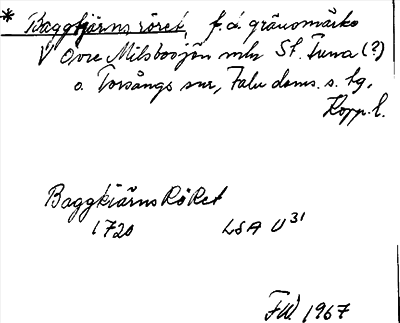 * Baggtjärns röret, f. d. gränsmärke
V Övre Milsbosjön mln St. Tuna (?)
o. Torsångs snr, Falu doms. s. lg,
Kopp. l.
Baggkiärns RöRet
1720 LSA U 31
FW. 1967